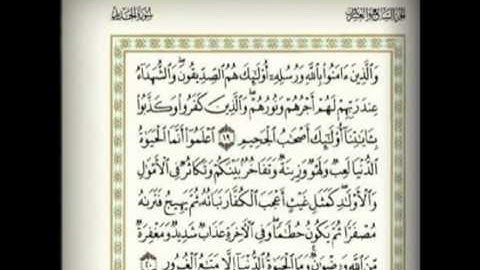 الجزء السابع والعشرون
سورة الحديد
وَالَّذِينَ ءَامَنُوا بِاللَّهِ وَرُسُلِهِ أُولَٰئِكَ هُمُ الصِّدِّيقُونَ وَالشُّهَدَاءُ
عِندَ رَبِّهِمْ لَهُمْ أَجْرُهُمْ وَنُورُهُمْ وَالَّذِينَ كَفَرُوا وَكَذَّبُوا
بِـَٔايَٰتِنَا أُولَٰئِكَ أَصْحَٰبُ الْجَحِيمِ ١٩ اعْلَمُوا أَنَّمَا الْحَيَوٰةُ
الدُّنْيَا لَعِبٌ وَلَهْوٌ وَزِينَةٌ وَتَفَاخُرٌ بَيْنَكُمْ وَتَكَاثُرٌ فِي الْأَمْوَٰلِ
وَالْأَوْلَٰدِ كَمَثَلِ غَيْثٍ أَعْجَبَ الْكُفَّارَ نَبَاتُهُ ثُمَّ يَهِيجُ فَتَرَىٰهُ
مُصْفَرًّا ثُمَّ يَكُونُ حُطَٰمًا وَفِي الْءَاخِرَةِ عَذَابٌ شَدِيدٌ وَمَغْفِرَةٌ
مِّنَ اللَّهِ وَرِضْوَٰنٌ وَمَا الْحَيَوٰةُ الدُّنْيَا إِلَّا مَتَٰعُ الْغُرُورِ ٢٠